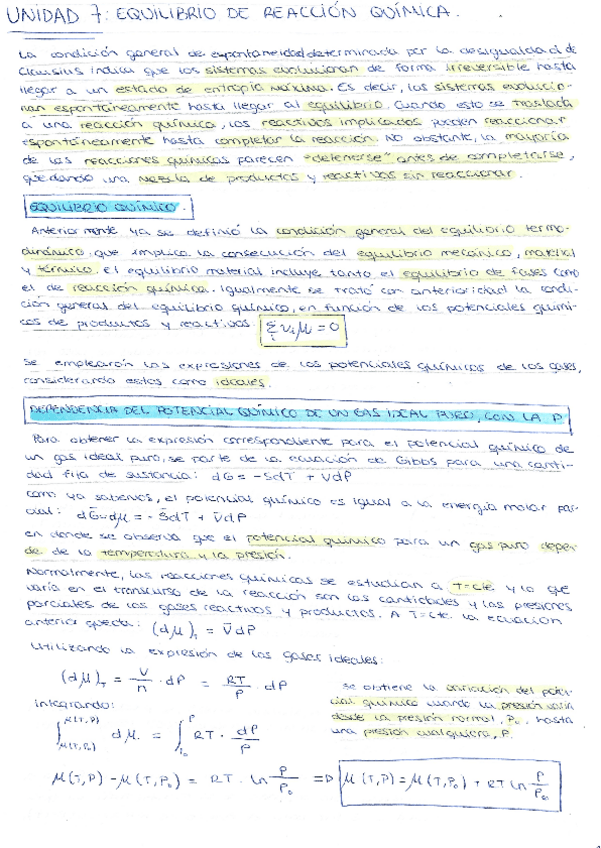 UNIDAD 7: EQUILIBRIO DE REACCIÓN QUÍMICA.
La condición general de espontaneidad determinada por la desigualdad de
Clausius indica que los sistemas evolucionan de forma irreversible hasta
llegar a un estado de entropía máxima. Es decir, los sistemas evolucio-
nan espontáneamente hasta llegar al equilibrio. Cuando esto se traslada
a una reacción química, los reactivos implicados pueden reaccionar
espontáneamente hasta completar la reacción. No obstante, la mayoría
de las reacciones químicas parecen "detenerse" antes de completarse,
quedando una mezcla de productos y reactivos sin reaccionar.
EQUILIBRIO QUÍMICO.
Anteriormente ya se definió la condición general del equilibrio termo-
dinámico que implica la consecución del equilibrio mecánico, material
y térmico. El equilibrio material incluye tanto el equilibrio de fases como
el de reacción química. Igualmente se trató con anterioridad la condi-
ción general del equilibrio químico, en función de los potenciales quími-
cos de productos y reactivos. Σ νᵢμᵢ = 0
Se emplearán las expresiones de los potenciales químicos de los gases,
considerando estos como ideales.
DEPENDENCIA DEL POTENCIAL QUÍMICO DE UN GAS IDEAL PURO, CON LA P
Para obtener la expresión correspondiente para el potencial químico de
un gas ideal puro, se parte de la ecuación de Gibbs para una canti-
dad fija de sustancia: dG = -SdT + VdP
como ya sabemos, el potencial químico es igual a la energía molar par-
cial: dG̅ = dμ = -S̅dT + V̅dP
en donde se observa que el potencial químico para un gas puro depen-
de de la temperatura y la presión.
Normalmente, las reacciones químicas se estudian a T=cte. y lo que
varía en el transcurso de la reacción son las cantidades y las presiones
parciales de los gases reactivos y productos. A T=cte. la ecuación
anterior queda: (dμ)ₜ = V̅dP
Utilizando la expresión de los gases ideales:
(dμ)ₜ = V/n · dP = RT/P dP
se obtiene la variación del poten-
cial químico cuando la presión varía
desde la presión normal, P₀, hasta
una presión cualquiera, P.
integrando:
∫μ(T,P₀)^μ(T,P) dμ = ∫P₀^P RT · dP/P
μ(T,P) - μ(T,P₀) = RT · ln P/P₀ ⇒ μ(T,P) = μ(T,P₀) + RT ln P/P₀